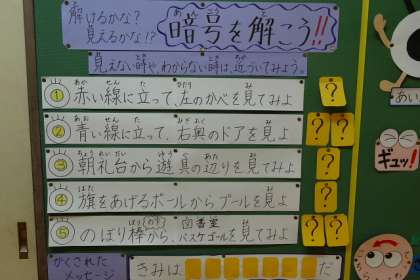 解けるかな?
見えるかな!?
暗号を解こう!!
見えない時や、わからない時は、近づいてみよう。
① 赤い線に立って、左のかべを見てみよ ?
② 青い線に立って、右奥のドアを見よ ? ?
③ 朝礼台から遊具の辺りを見てみよ ?
④ 旗をあげるポールからプールを見よ ?
⑤ のぼり棒から、バスケゴールを見てみよ ? ?
かくされた
メッセージ
きみは だ
あい
ギュッ!